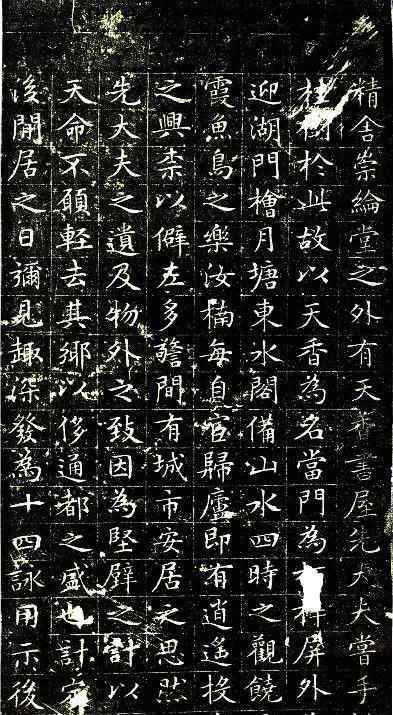 精舍崇綸堂之外有天香書屋先大夫嘗手
桂樹於此故以天香為名當門為屏外
迎湖門檜月塘東水閣備山水四時之觀饒
霞魚鳥之樂汝楠每自官歸廬即有逍遙投
之興柰以僻左多警間有城市安居之思然
先大夫之遺及物外之致因為堅壁之計以
天命不願輕去其鄉以侈通都之盛也計定
後閒居之日彌見趣深發為十四詠用示後